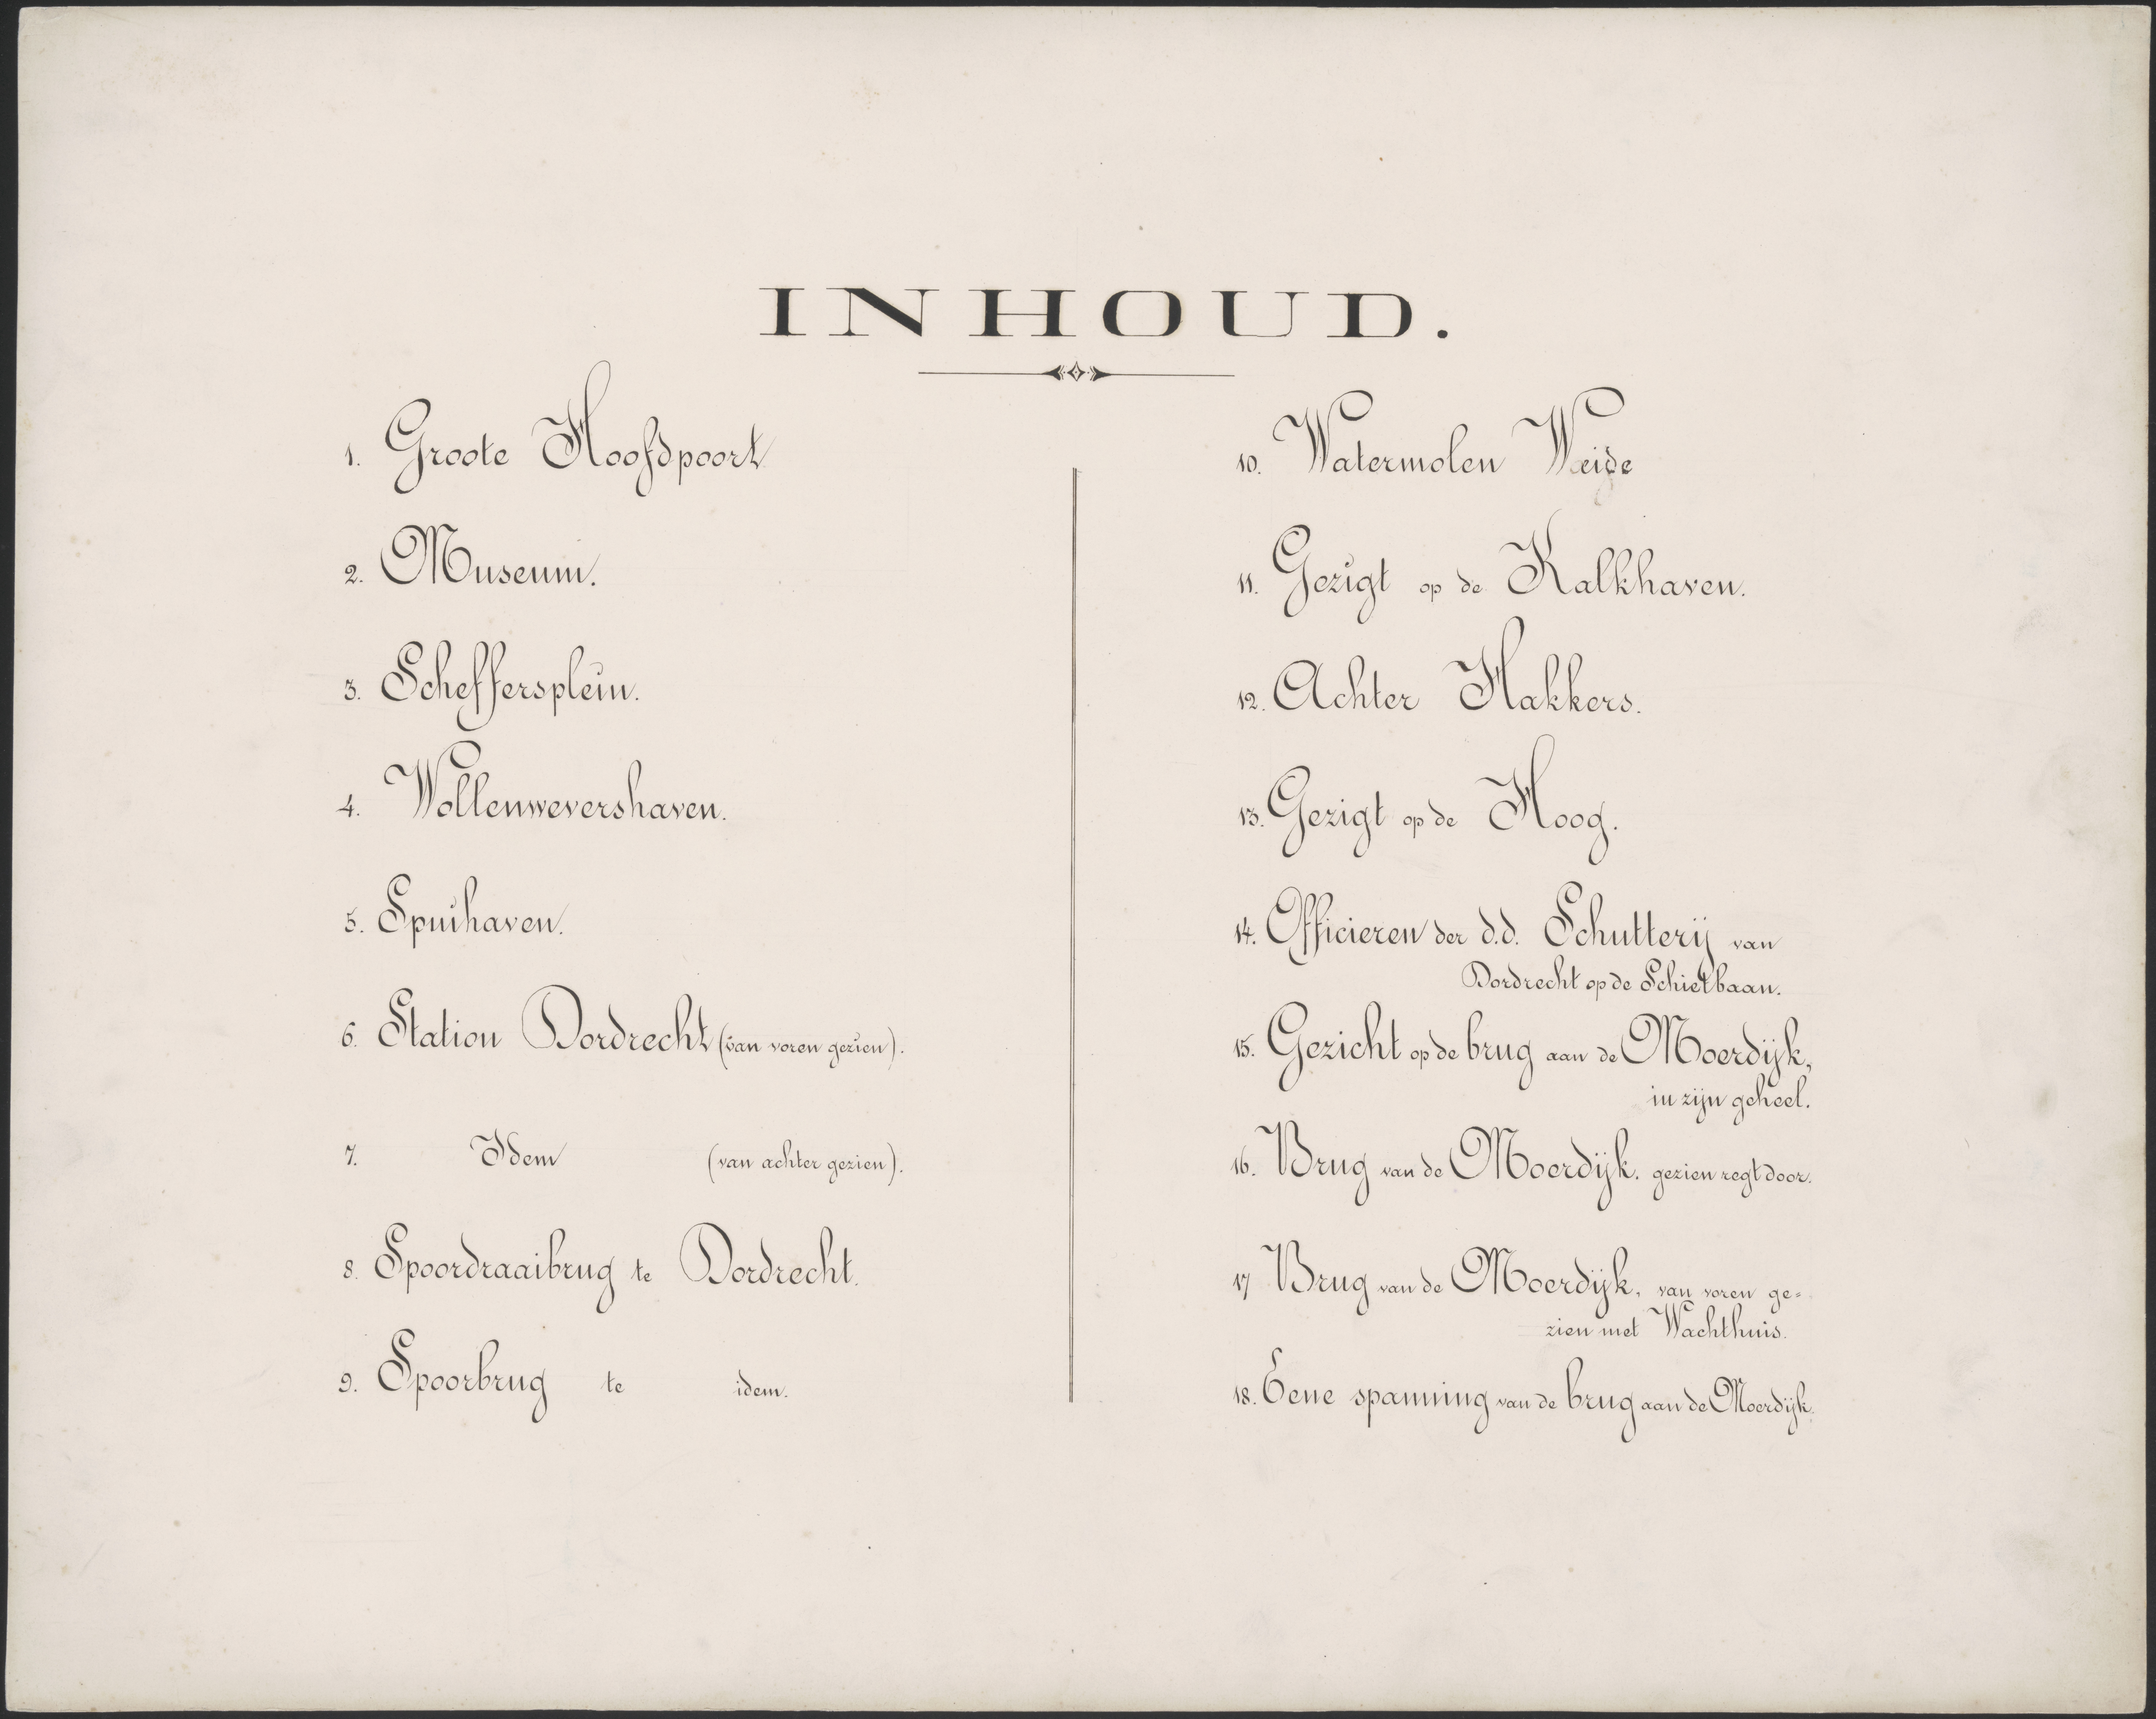 INHOUD.
1. Groote Hoofdpoort
2. Museum.
3. Scheffersplein.
4. Wollenwevershaven.
5. Spuihaven.
6. Station Dordrecht (van voren gezien).
7. Idem (van achter gezien).
8. Spoordraaibrug te Dordrecht.
9. Spoorbrug te idem.
10. Watermolen Weide
11. Gezigt op de Kalkhaven.
12. Achter Hakkers.
13. Gezigt op de Hoog.
14. Officieren der d.d. Schutterij van
Dordrecht op de Schietbaan.
15. Gezicht op de brug aan de Moerdijk,
in zijn geheel.
16. Brug van de Moerdijk. gezien regt door.
17 Brug van de Moerdijk, van voren ge=
zien met Wachthuis.
18. Eene spanning van de brug aan de Moerdijk.